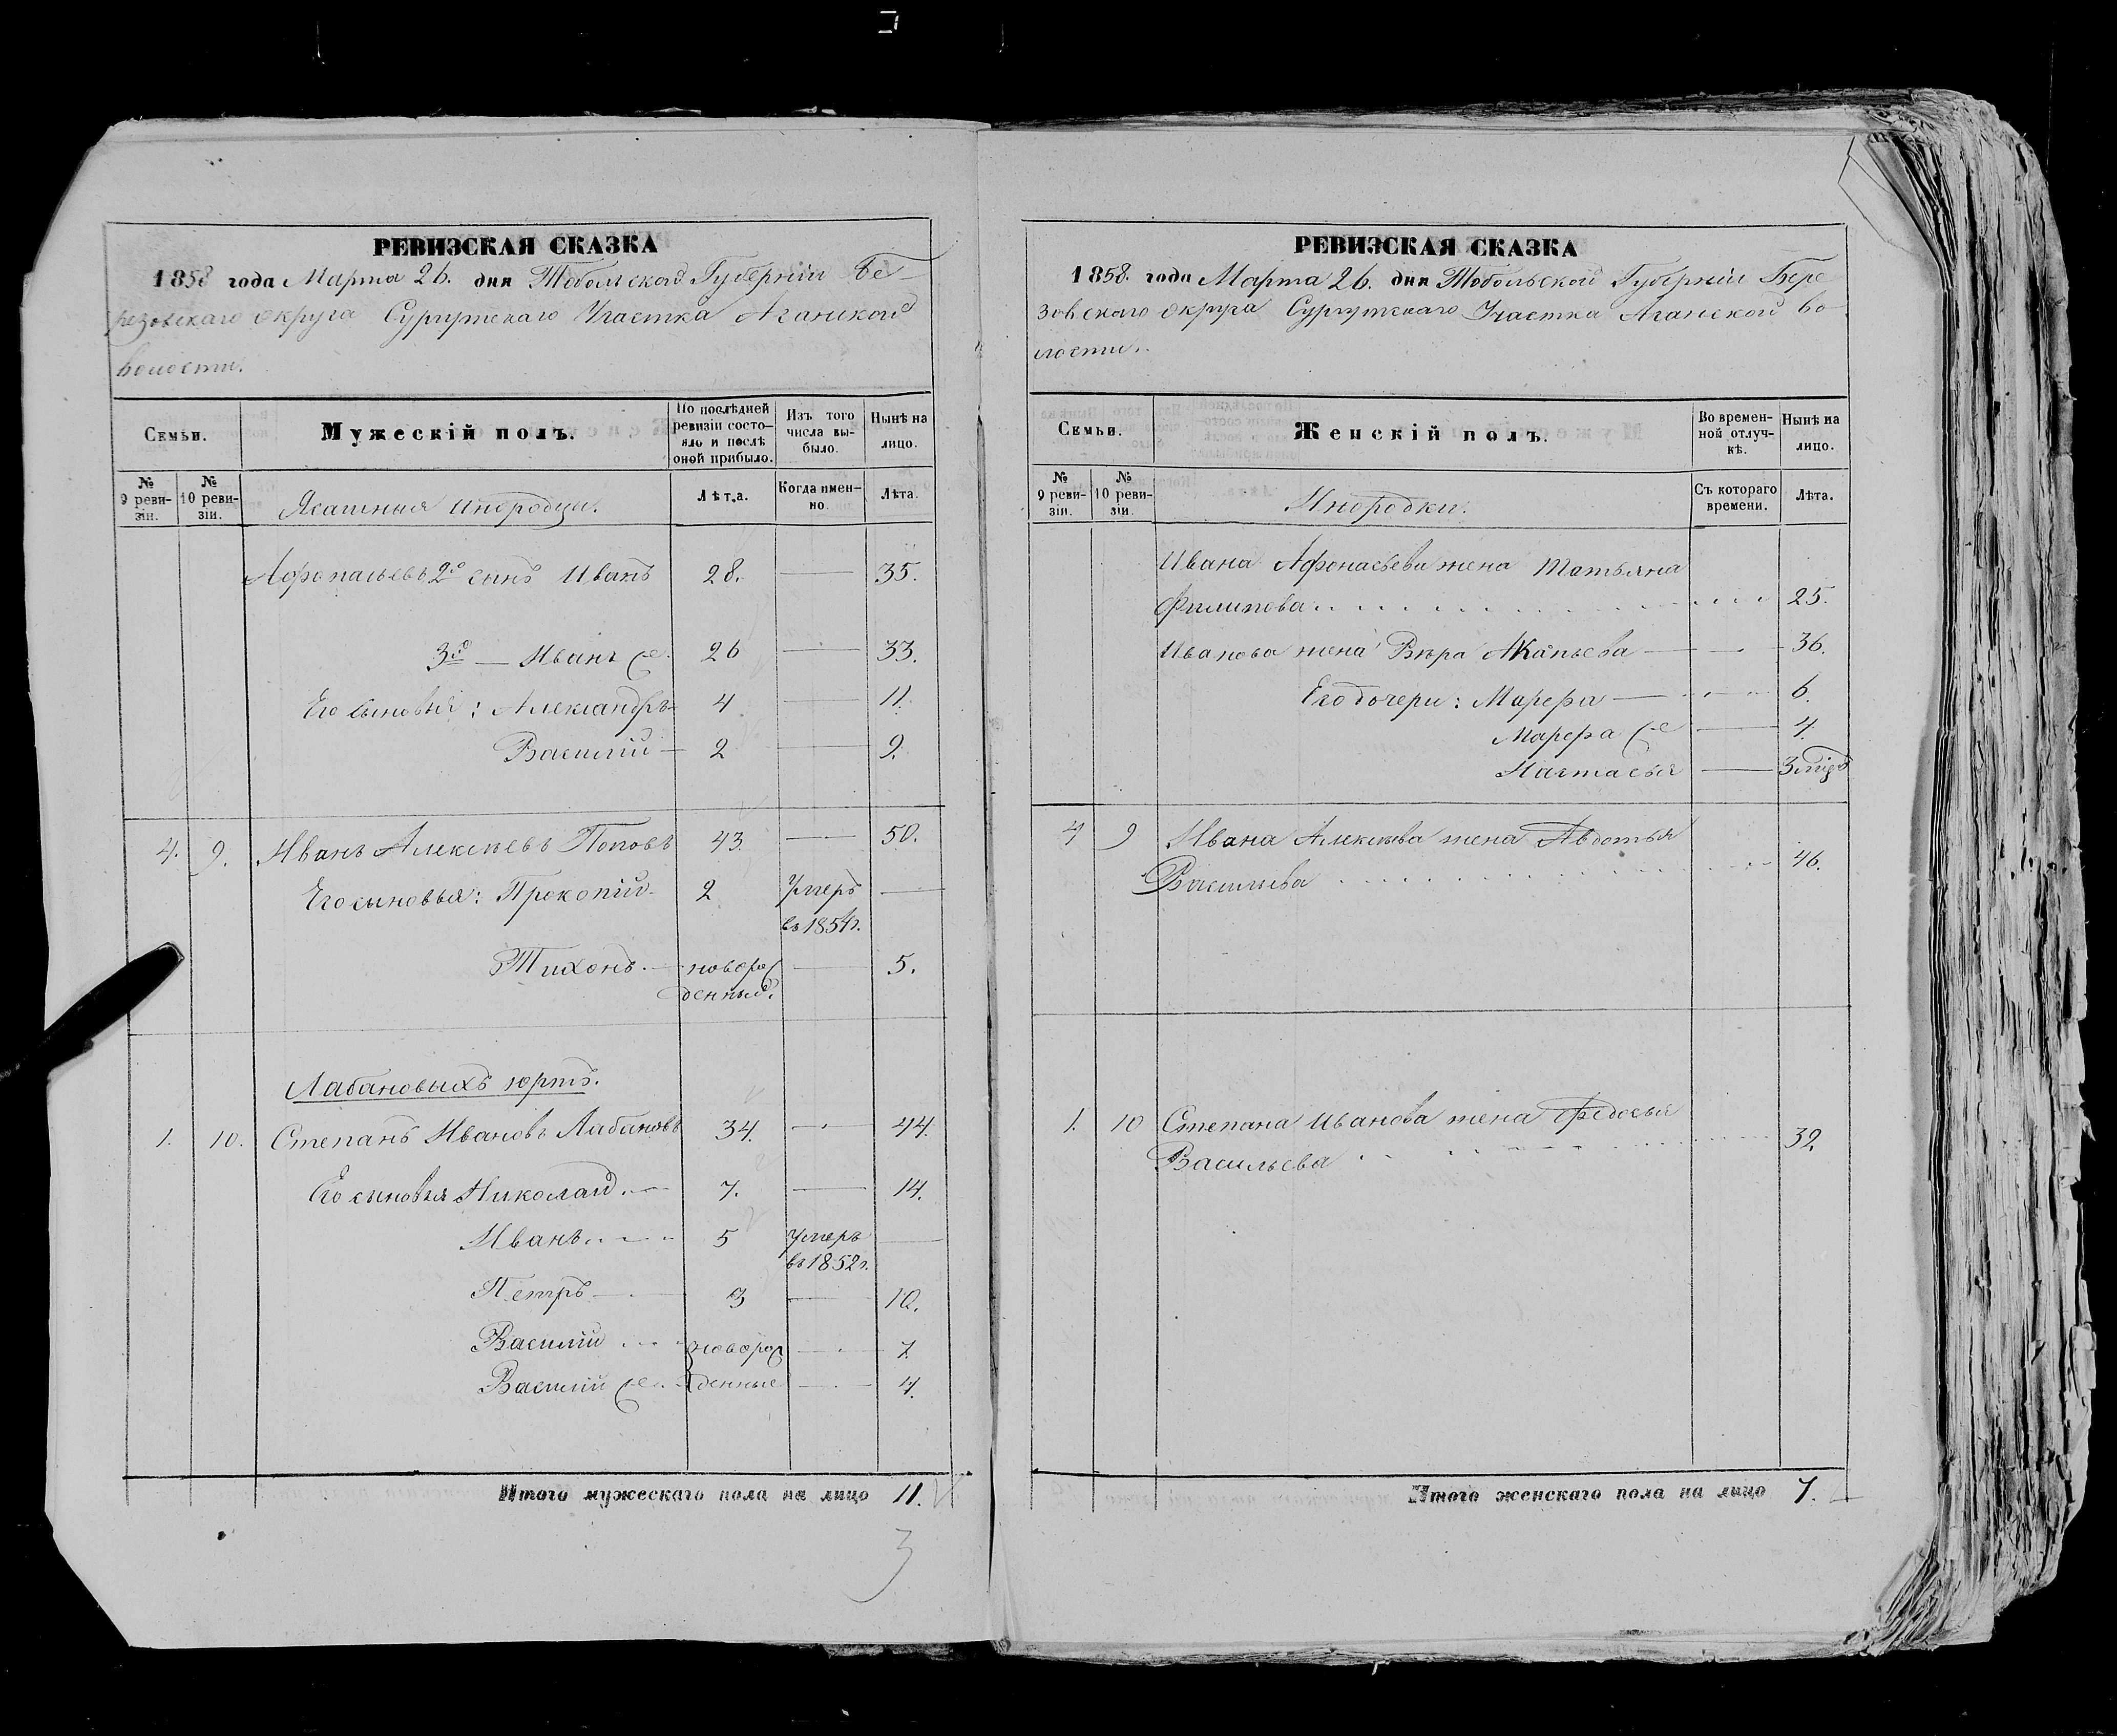 РЕВИЗСКАЯ СКАЗКА
1858 года Марта 26. дня Тобольской Губерніи Бе-
резовскаго округа Сургутскаго Участка Аганской
волости.
Семьи.
Мужескій полъ.
По послѣдней ревизіи состояло и послѣ оной прибыло.
Изъ того числа выбыло.
Нынѣ на лицо.
№ 9 ревизіи.
№ 10 ревизіи.
Ясашныя инородцы.
Лѣта.
Когда именно.
Лѣта.
Афонасьевъ 2й сынъ Иванъ 28. — 35.
3й — Иванъ 26 — 33.
Его сыновья: Александръ 4 — 11.
Василій — 2 — 9.
4. 9. Иванъ Алексѣевъ Поповъ 43. — 50.
Его сыновья: Прокопій 2 Умеръ —
въ 1854г.
Тихонъ. — новорож — 5.
денный.
Лабановыхъ юртъ.
1. 10. Степанъ Ивановъ Лабановъ 34. — 44.
Его сыновья Николай. — 7. — 14.
Иванъ. 5 Умеръ —
въ 1852г.
Петръ — 3 — 10.
Василій новорож — 7.
Василій денные — 4.
Итого мужескаго пола на лицо 11.
3
РЕВИЗСКАЯ СКАЗКА
1858. года Марта 26. дня Тобольской Губерніи Бере
зовскаго округа Сургутскаго Участка Аганской во-
лости.
Семьи.
Женскій полъ.
Во временной отлучкѣ.
Нынѣ на лицо.
№ 9 ревизіи.
№ 10 ревизіи.
Инородки.
Съ котораго времени.
Лѣта.
Ивана Афонасьева жена Татьяна
Филипова 25.
Иванова жена Вѣра — 36.
Его дочери: Марфа — 6.
Марфа — 4.
Настасья — 3
4 9 Ивана Алексѣева жена Авдотья
Васильева 46.
1. 10 Степана Иванова жена Федосья
Васильева 32
Итого женскаго пола на лицо 7.